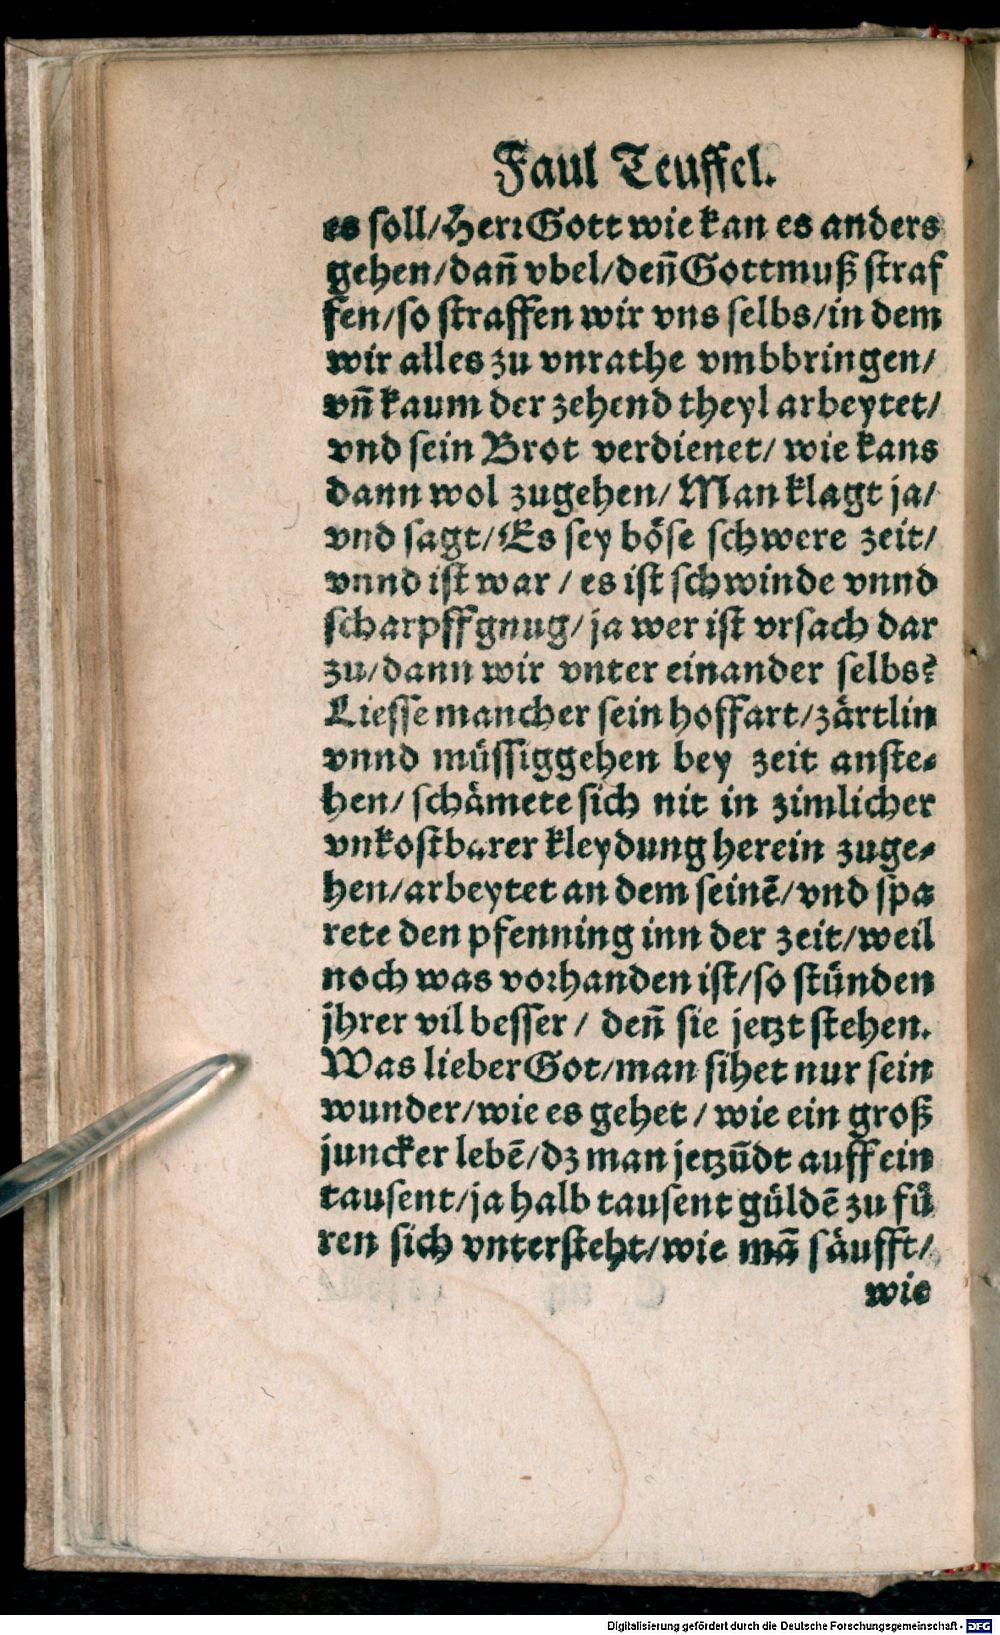 Faul Teuffel.
es soll/Herꝛ Gott wie kan es anders
gehen/dañ vbel/deñ Gott muß straf
fen/so straffen wir vns selbs/in dem
wir alles zu vnrathe vmbbringen/
vñ kaum der zehend theyl arbeytet/
vnd sein Brot verdienet/ wie kans
dann wol zugehen/ Man klagt ja/
vnd sagt/Es sey böse schwere zeit/
vnnd ist war / es ist schwinde vnnd
scharpff gnug/ ja wer ist vrsach dar
zu/dann wir vnter einander selbs?
Liesse mancher sein hoffart/zärtlin
vnnd müssiggehen bey zeit anste⸗
hen/ schämete sich nit in zimlicher
vnkostbarer kleydung herein zuge⸗
hen/arbeytet an dem seinẽ/vnd spa
rete den pfenning inn der zeit/weil
noch was voꝛhanden ist/so stünden
jhrer vil besser / deñ sie jetzt stehen.
Was lieber Got/man sihet nur sein
wunder/wie es gehet / wie ein groß
juncker lebẽ/dz man jetzũdt auff ein
tausent/ja halb tausent güldẽ zu fü
ren sich vntersteht/wie mã säufft/
wie
Digitalisierung gefördert durch die Deutsche Forschungsgemeinschaft - DFG